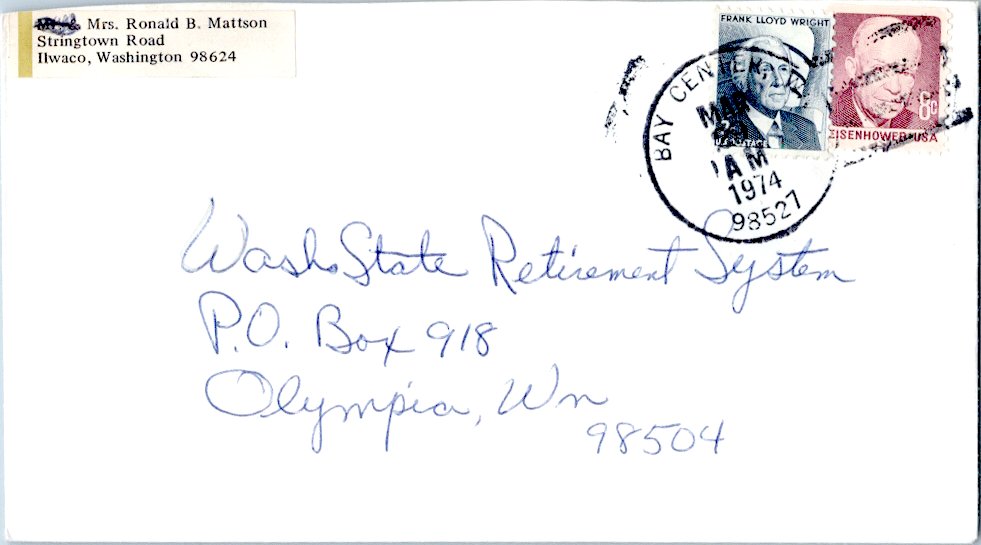 Mrs. Ronald B. Mattson
Stringtown Road
Ilwaco, Washington 98624
FRANK LLOYD WRIGHT
8c
EISENHOWER·USA
BAY CENTER, WA
MAR
AM
1974
98527
Wash. State Retirement System
P.O. Box 918
Olympia, Wn
98504